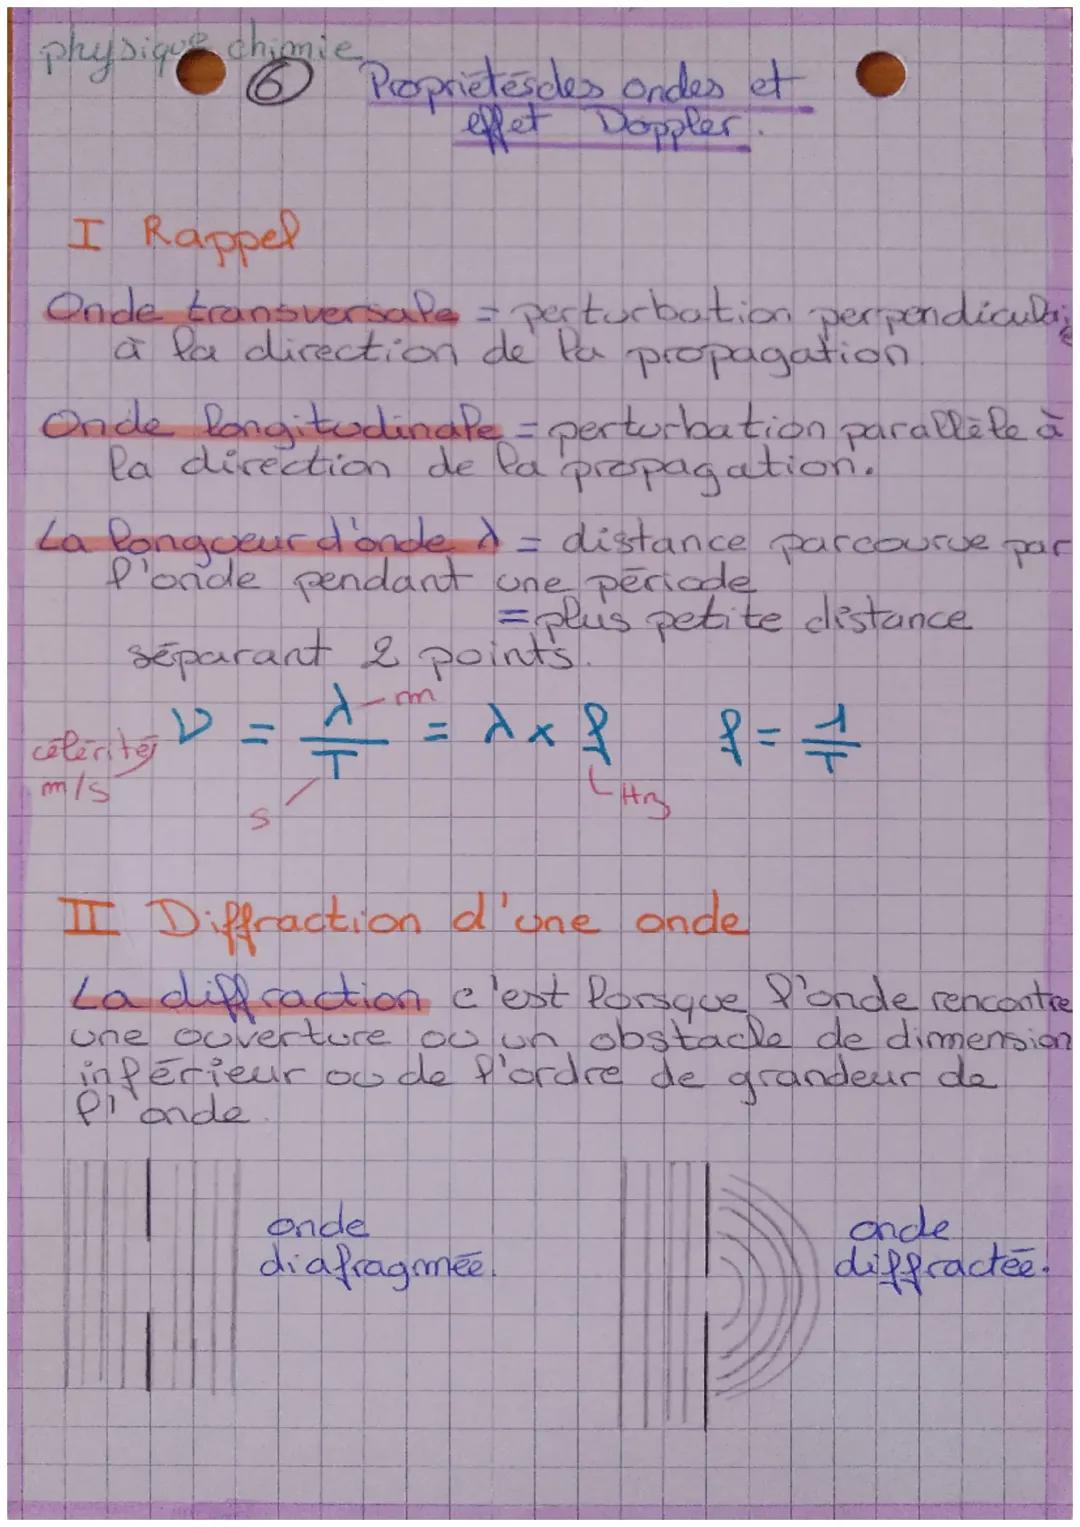 physique chimie
6 Propriétés des ondes et
effet Doppler.
I Rappel
Onde transversale = perturbation perpendiculaire
à la direction de la propagation.
Onde longitudinale = perturbation parallèle à
la direction de la propagation.
La longueur d'onde λ = distance parcourue par
l'onde pendant une période
= plus petite distance
séparant 2 points.
célérité m/s V = λ/T = λ x f f = 1/T
m
s
Hz
II Diffraction d'une onde
La diffraction c'est lorsque l'onde rencontre
une ouverture ou un obstacle de dimension
inférieur ou de l'ordre de grandeur de
l'onde.
onde
diafragmée.
onde
diffractée.